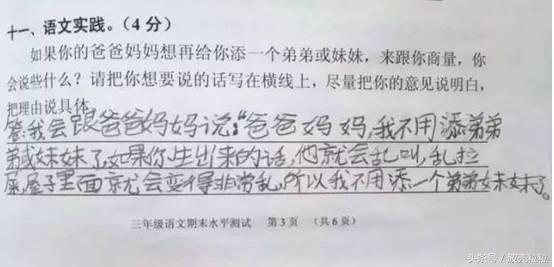 十一、语文实践。(4分)
如果你的爸爸妈妈想再给你添一个弟弟或妹妹，来跟你商量，你
会说些什么？请把你想要说的话写在横线上，尽量把你的意见说明白，
把理由说具体。
答:我会跟爸爸妈妈说:“爸爸妈妈,我不用添弟弟
弟或妹妹了,如果你生出来的话,他就会乱叫,乱拉
屎,屋子里面就会变得非常乱,所以我不用添一个弟弟妹妹了。
三年级语文期末水平测试 第3页 (共6页)
头条号 / 彼壳粒粒